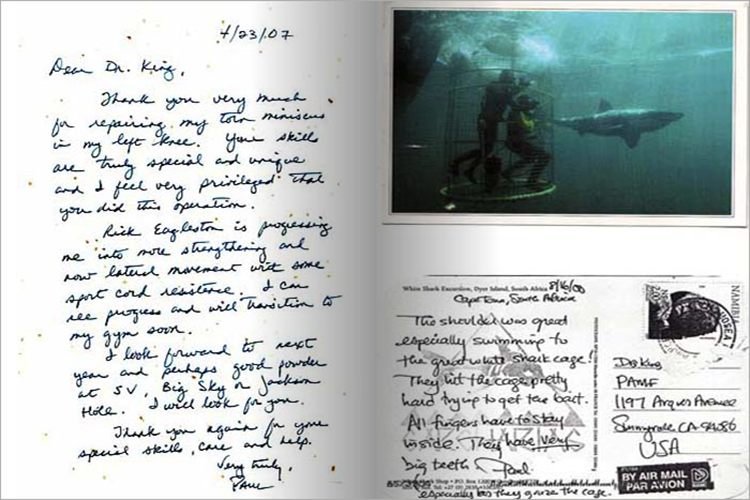 4/23/07
Dear Dr. King,
Thank you very much
for repairing my torn miniscus
in my left knee. Your skills
are truly special and unique
and I feel very privileged that
you did this operation.
Rick Eagleston is progressing
me into more strengthening and
now lateral movement with some
sport cord resistence. I can
see progress and will transition to
my gym soon.
I look forward to next
year and perhaps good powder
at SV, Big Sky or Jackson
Hole. I will look for you.
Thank you again for your
special skills, care and help.
Very truly,
Paul
White Shark Excursion, Dyer Island, South Africa 8/16/00
Cape Town, South Africa
The shoulder was great
especially swimming to
the great white shark cage!
They hit the cage pretty
hard trying to get the bait.
All fingers have to stay
inside. They have very
big teeth Paul
especially as they gnaw the cage.
NAMIBIA
Dr King
PAMF
1197 Arques Avenue
Sunnyvale CA 94086
USA
BY AIR MAIL
PAR AVION